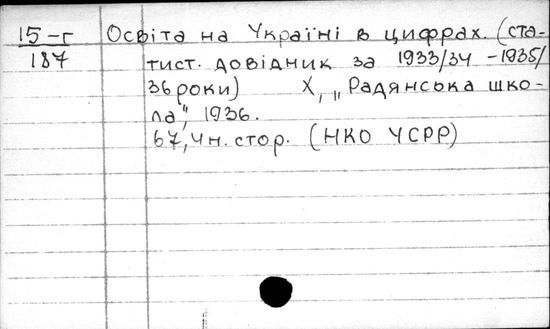 15-г
187
Освіта на Україні в цифрах. (ста-
тист. довідник за 1933/34 -1935/
36 роки) Х, „Радянська шко-
ла", 1936.
67, 4 н. стор. (НКО УСРР)